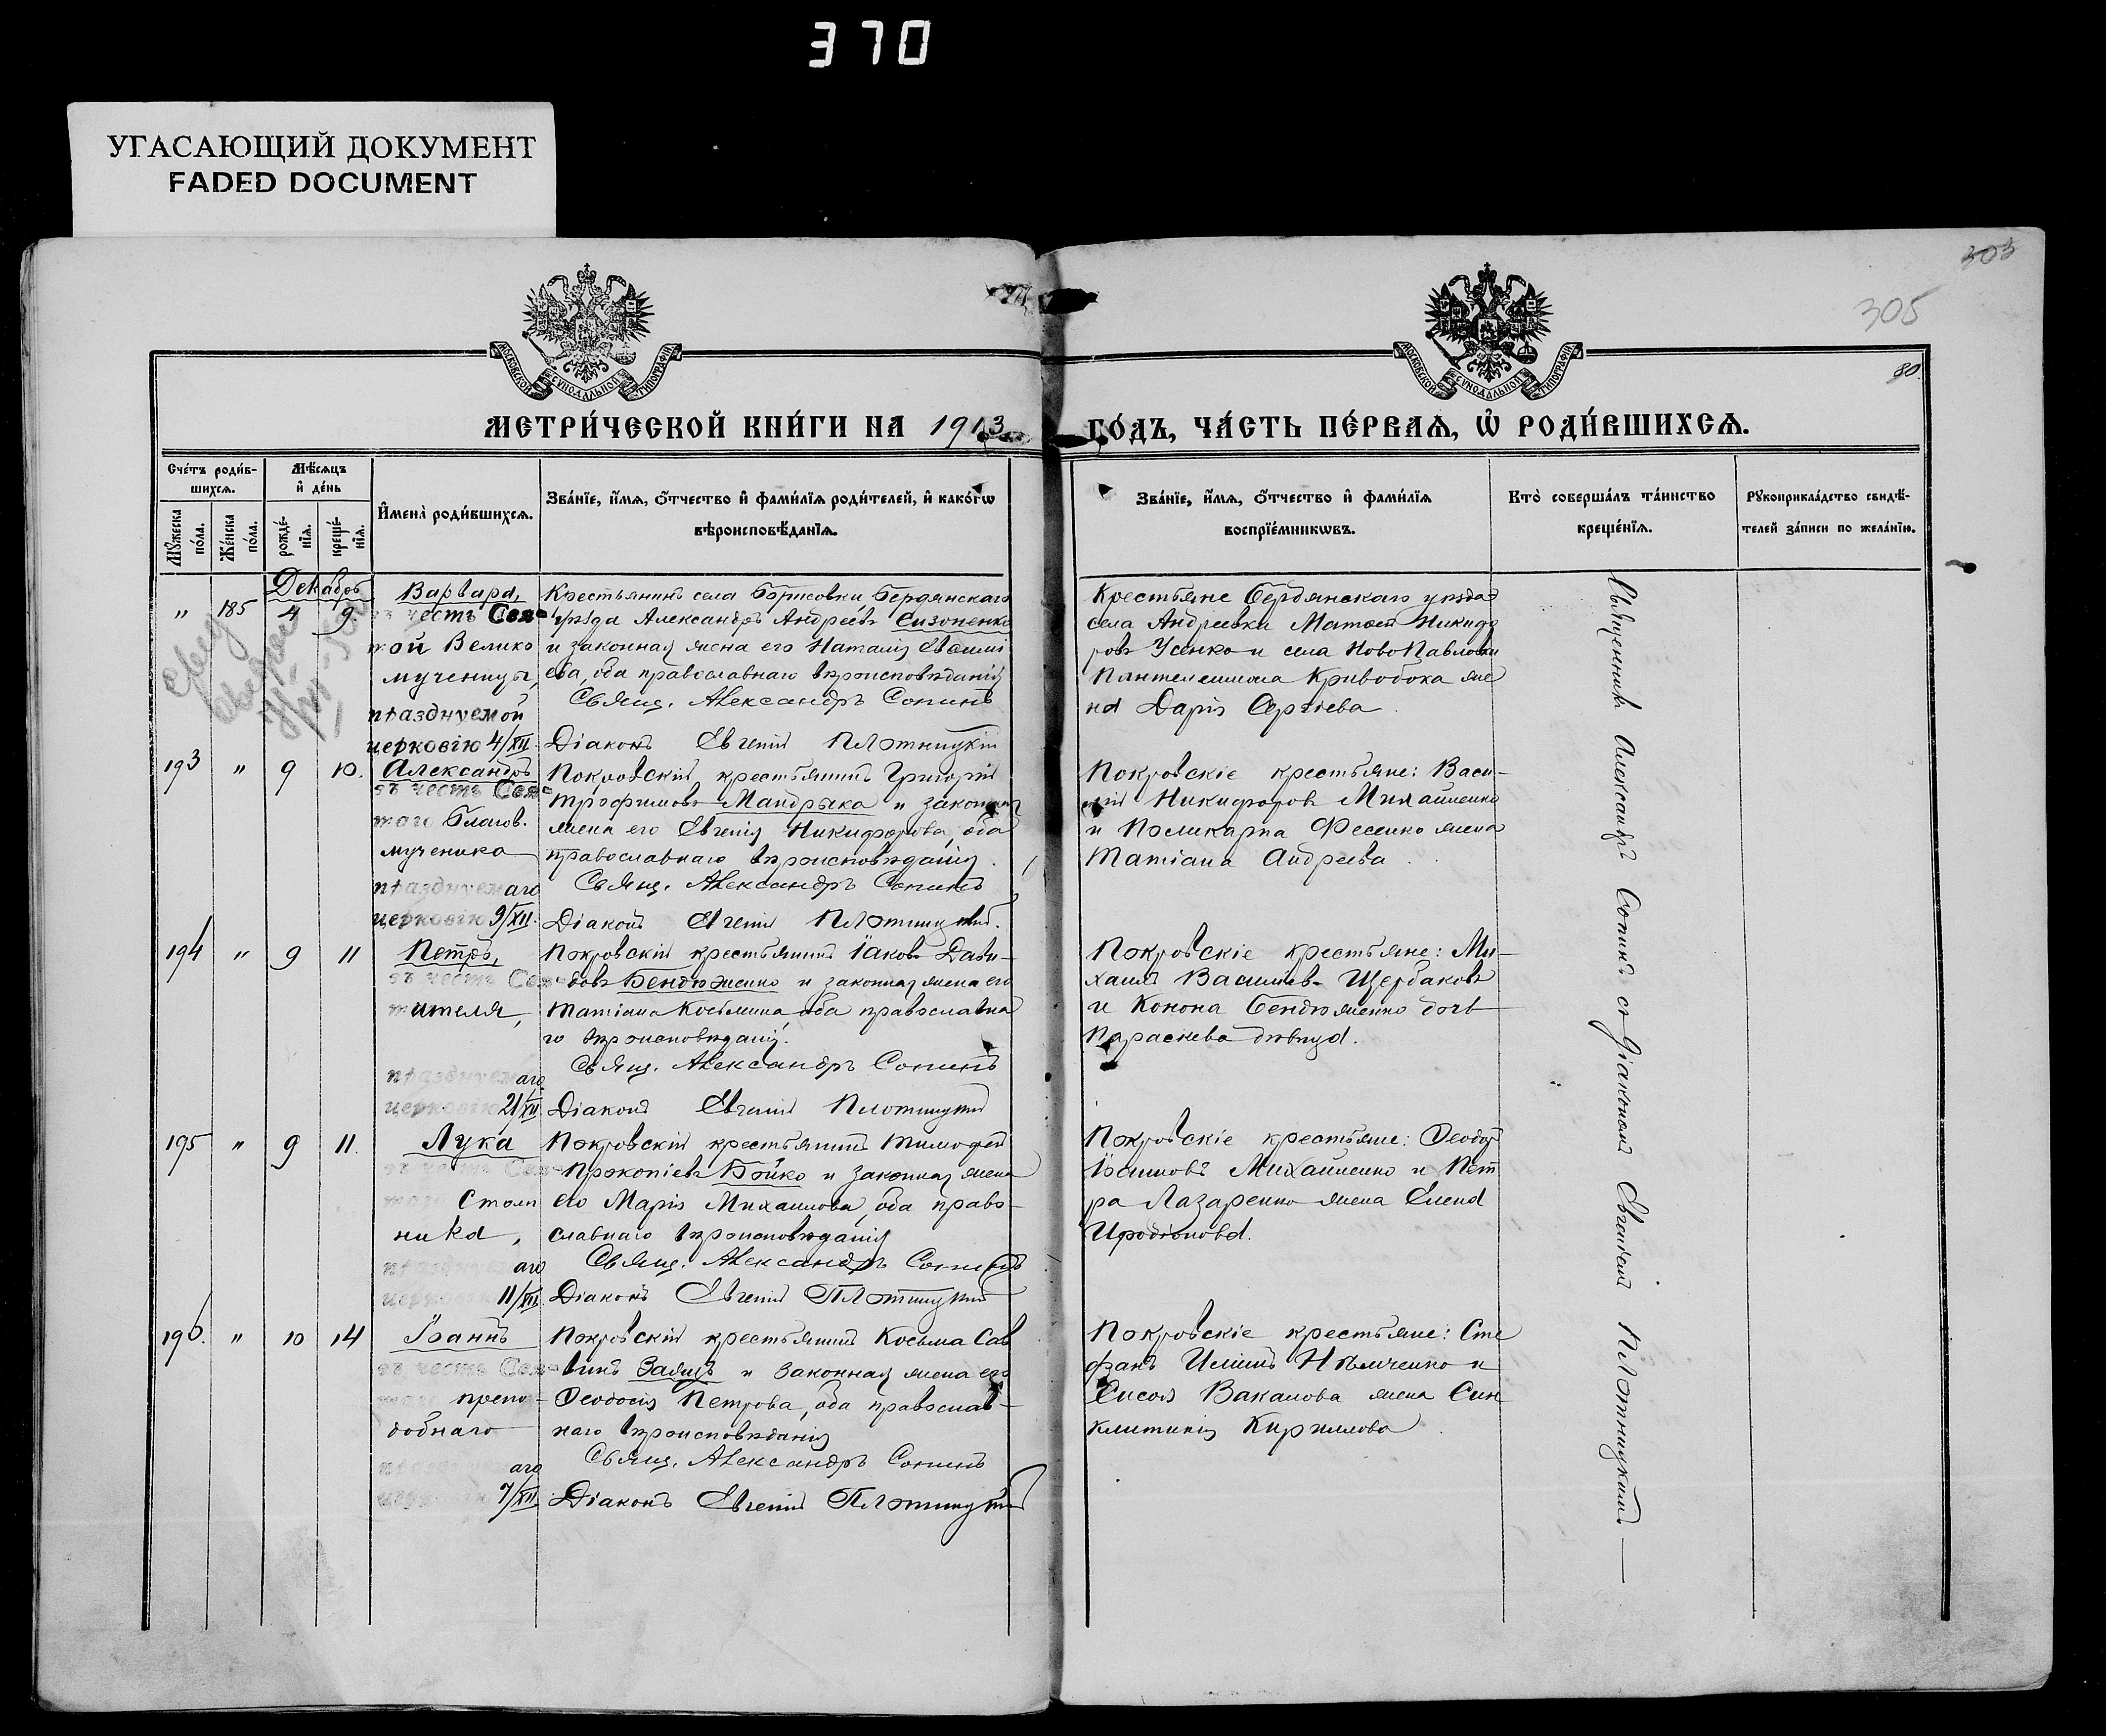 370
УГАСАЮЩИЙ ДОКУМЕНТ
FADED DOCUMENT
303
305
80.
МОСКОВСКОЙ СУНОДАЛЬНОЙ ТИПОГРАФІИ
МОСКОВСКОЙ СУНОДАЛЬНОЙ ТИПОГРАФІИ
МЕТРИ́ЧЕСКОЙ КНИ́ГИ НА 1913
ГО́ДЪ, ЧА́СТЬ ПЕ́РВАѦ, Ѡ҆ РОДИ́ВШИХСѦ.
Сче́тъ роди́в-
шихсѧ.
Мѣ́сѧцъ
и҆ де́нь
Мꙋ́жеска
по́ла.
Же́нска
по́ла.
рожде́-
нїѧ.
креще́-
нїѧ.
И҆мена̀ роди́вшихсѧ.
Зва́нїе, и҆́мѧ, ѻ҆́тчество и҆ фами́лїѧ роди́телей, и҆ како́гѡ
вѣроисповѣ́данїѧ.
Зва́нїе, и҆́мѧ, ѻ҆́тчество и҆ фами́лїѧ
воспрїе́мникѡвъ.
Кто̀ соверша́лъ та́инство
креще́нїѧ.
Рꙋкоприкла́дство свидѣ́-
телей за́писи по жела́нїю.
Декабрь
" 185 4 9.
Варвара,
въ честь Свя-
той Велико
мученицы,
празднуемой
церковію 4/XII.
Крестьянинъ села Борисовки, Бердянскаго
уѣзда Александръ Андреевъ Сизоненко
и законная жена его Наталія
ева, оба православнаго вѣроисповѣданія
Свящ. Александръ Сопинъ
Діаконъ Евгеній Плотницкій
Крестьяне Бердянскаго уѣзда
села Андреевки Матвей Никифо
ровъ Усенко и села НовоПавловки
Пантелеимона Кривобока же
на Дарія Сергіева
193 " 9 10.
Александръ
въ честь Свя-
таго Благов.
мученика
празднуемаго
церковію 9/XII.
Покровскій крестьянинъ Григорій
Трофимовъ Мандрыка и законная
жена его Евгенія Никифорова, оба
православнаго вѣроисповѣданія.
Свящ. Александръ Сопинъ
Діаконъ Евгеній Плотницкій.
Покровскіе крестьяне: Васи-
лій Никифоровъ Михайленко
и Поликарпа Фесенко жена
Татіана Андреева
194 " 9 11
Петръ,
въ честь Свя-
тителя,
празднуемаго
церковію 21/XII
Покровскій крестьянинъ Іаковъ Дави-
довъ Бендюженко и законная жена его
Татіана Косьмина, оба православна
го вѣроисповѣданія.
Свящ. Александръ Сопинъ
Діаконъ Евгеній Плотницкій
Покровскіе крестьяне: Ми-
хаилъ Васильевъ Щербаковъ
и Конона Бендюженко дочь
Параскева дѣвица.
195 " 9 11.
Лука
въ честь Свя-
таго Столп
ника,
празднуемаго
церковію 11/XII
Покровскій крестьянинъ Тимофей
Прокопіевъ Бойко и законная жена
его Марія Михаилова, оба право-
славнаго вѣроисповѣданія
Свящ. Александръ Сопинъ
Діаконъ Евгеній Плотницкій
Покровскіе крестьяне: Феодоръ
Михайленко и Пет
ра Лазаренко жена Елена
Иродіонова.
196. " 10 14
Іоаннъ
въ честь Свя-
таго препо-
добнаго
празднуемаго
церковію 7/XII.
Покровскій крестьянинъ Косьма Сав
винъ Заяцъ и законная жена его
Феодосія Петрова, оба православ-
наго вѣроисповѣданія
Свящ. Александръ Сопинъ
Діаконъ Евгеній Плотницкій
Покровскіе крестьяне: Сте
фанъ Ильинъ и
Сисоя Вакалова жена Син
клитикія Кириллова
Священникъ Александръ Сопинъ съ діакономъ Евгеніемъ Плотницкимъ